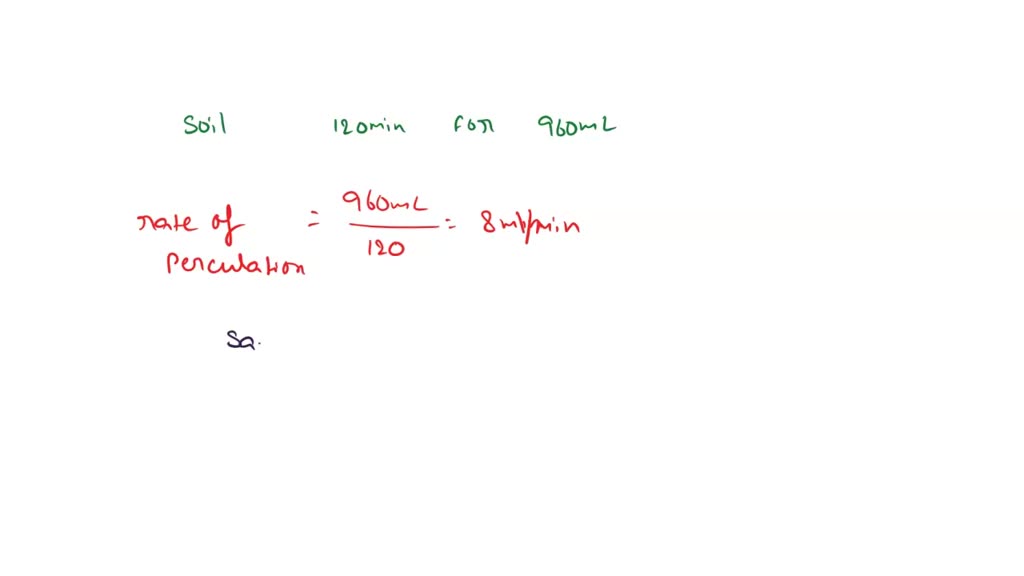 Soil 120min for 960mL
rate of = 960mL / 120 = 8ml/min
Perculation
Sa.